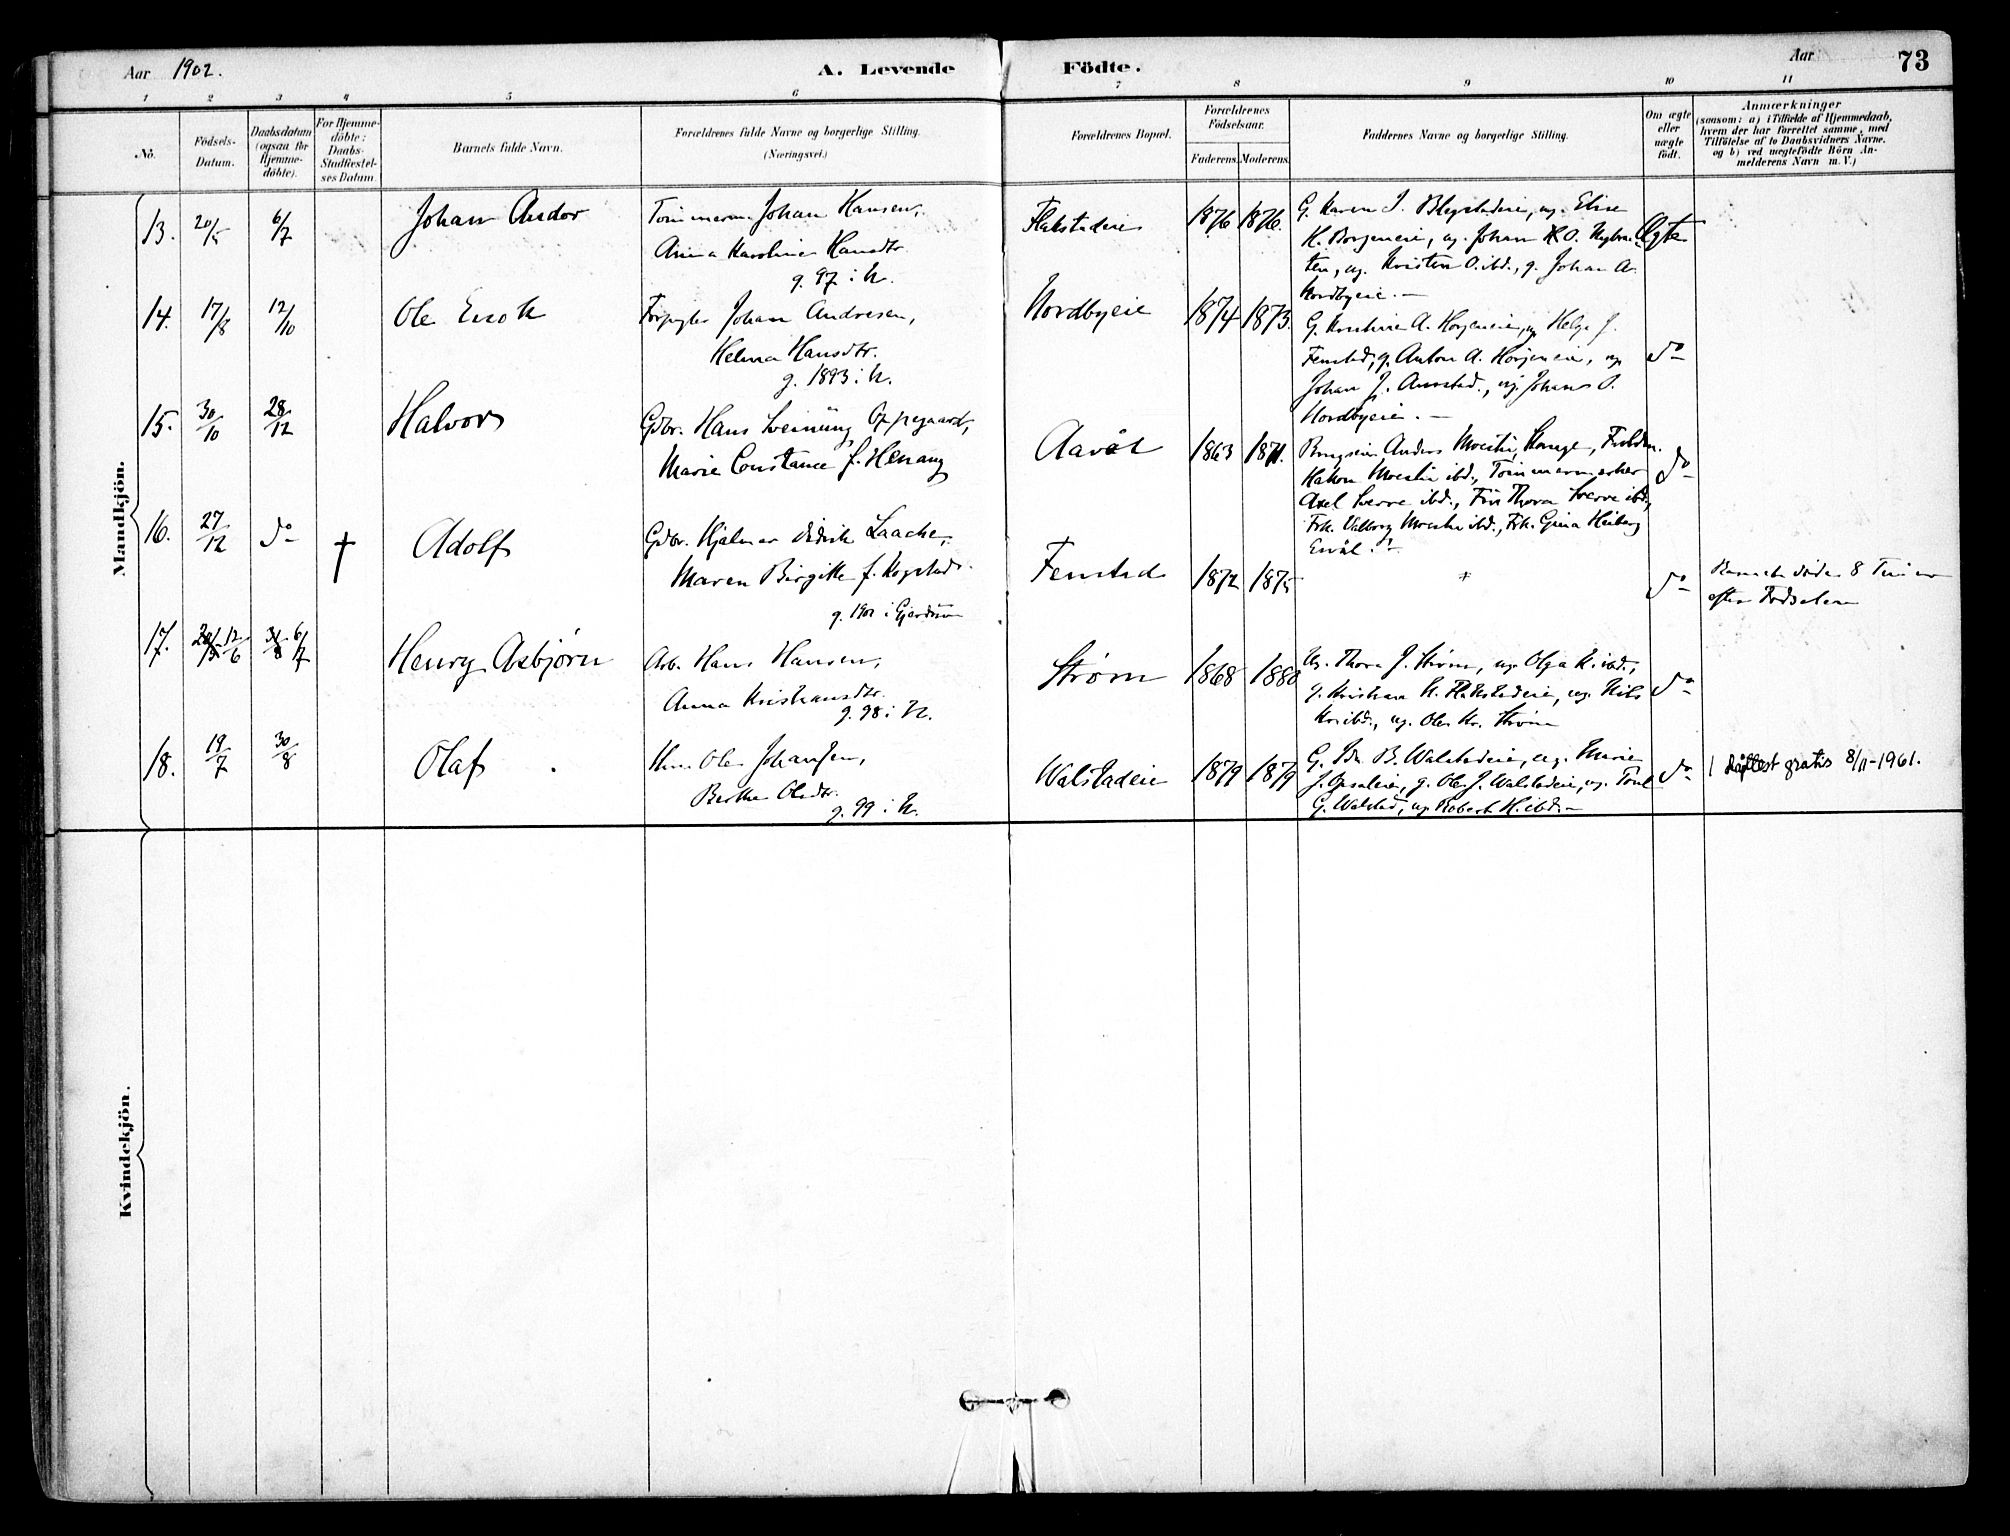 Aar 1902.
A. Levende Födte.
Aar
73
1 2 3 4 5 6 7 8 9 10 11
No.
Födsels-Datum.
Daabsdatum (ogsaa for Hjemmedöbte).
For Hjemmedöbte: Daabs-Stadfæstelses Datum.
Barnets fulde Navn.
Forældrenes fulde Navne og borgerlige Stilling.
(Næringsvei.)
Forældrenes Bopæl.
Forældrenes Födselsaar.
Faderens. Moderens.
Faddernes Navne og borgerlige Stilling.
Om ægte eller uægte födt.
Anmærkninger
(saasom: a) i Tilfælde af Hjemmedaab,
hvem der har forrettet samme, med
Tilföielse af to Daabsvidners Navne.
og b) ved uægtefödte Börn Anmelderens Navn m. V.)
Mandkjön.
13. 20/5 6/7 Johan Andor
Tømmerm. Johan Hansen,
Anna Karoline Hansdtr.
g. 97 i N.
Flakstadeie 1876 1876.
G. Karen J. Blegstadeie, ug. Elise
H. Borgeneie, ug. Johan O.
ug. Kristen O. ibd., g. Johan A.
Nordbyeie. —
Ægte
14. 17/8 12/10 Ole Enok
Johan Andresen,
Helma Hansdtr.
g. 1893 i N.
Nordbyeie 1874 1873.
G. A. ug Helge J.
Fenstad, g. Anton A.
Johan J. ug Johans O.
Nordbyeie. —
do
15. 30/10 28/12 Halvor
Gdbr. Hans Sveinung Oppegaard,
Marie Constance f. Henang
Aavål 1863 1871.
Anders Moestue, Stange,
Hakon Moestue ibd.,
Axel Sverre ibd., Thora Sverre ibd.,
Frk. Valborg Moestue ibd., Frk. Gina Heiberg
do
16. 27/12 do † Adolf
Gdbr. Hjalmar Didrik Laache,
Maren Birgitte f. Kogstad
g. 1901 i Gjerdrum
Fenstad 1872 1875
+
do
Barnet døde 8 Timer
efter Fødselen
17. 12/6 6/7 Henry Asbjørn
Arb. Hans Hansen,
Anna Kristiansdtr.
g. 98 i N.
Strøm 1868 1880
Ug. Thora J. Strøm, ug. Olga K. ibd.,
g. Kristian H. Flakstadeie, ug. Nils
ug. Ole Kr. Strøm
do
18. 19/7 30/8 Olaf
Hm. Ole Johansen,
Berthe Olsdtr.
g. 99 i N.
Walstadeie 1879 1879
G. B. Walstadeie, ug. Marie
J. g. Ole J. Walstadeie, ug.
G. Walstad, ug Robert H. ibd. —
do
1 dåpsattest gratis 8/11-1961.
Kvindekjön.